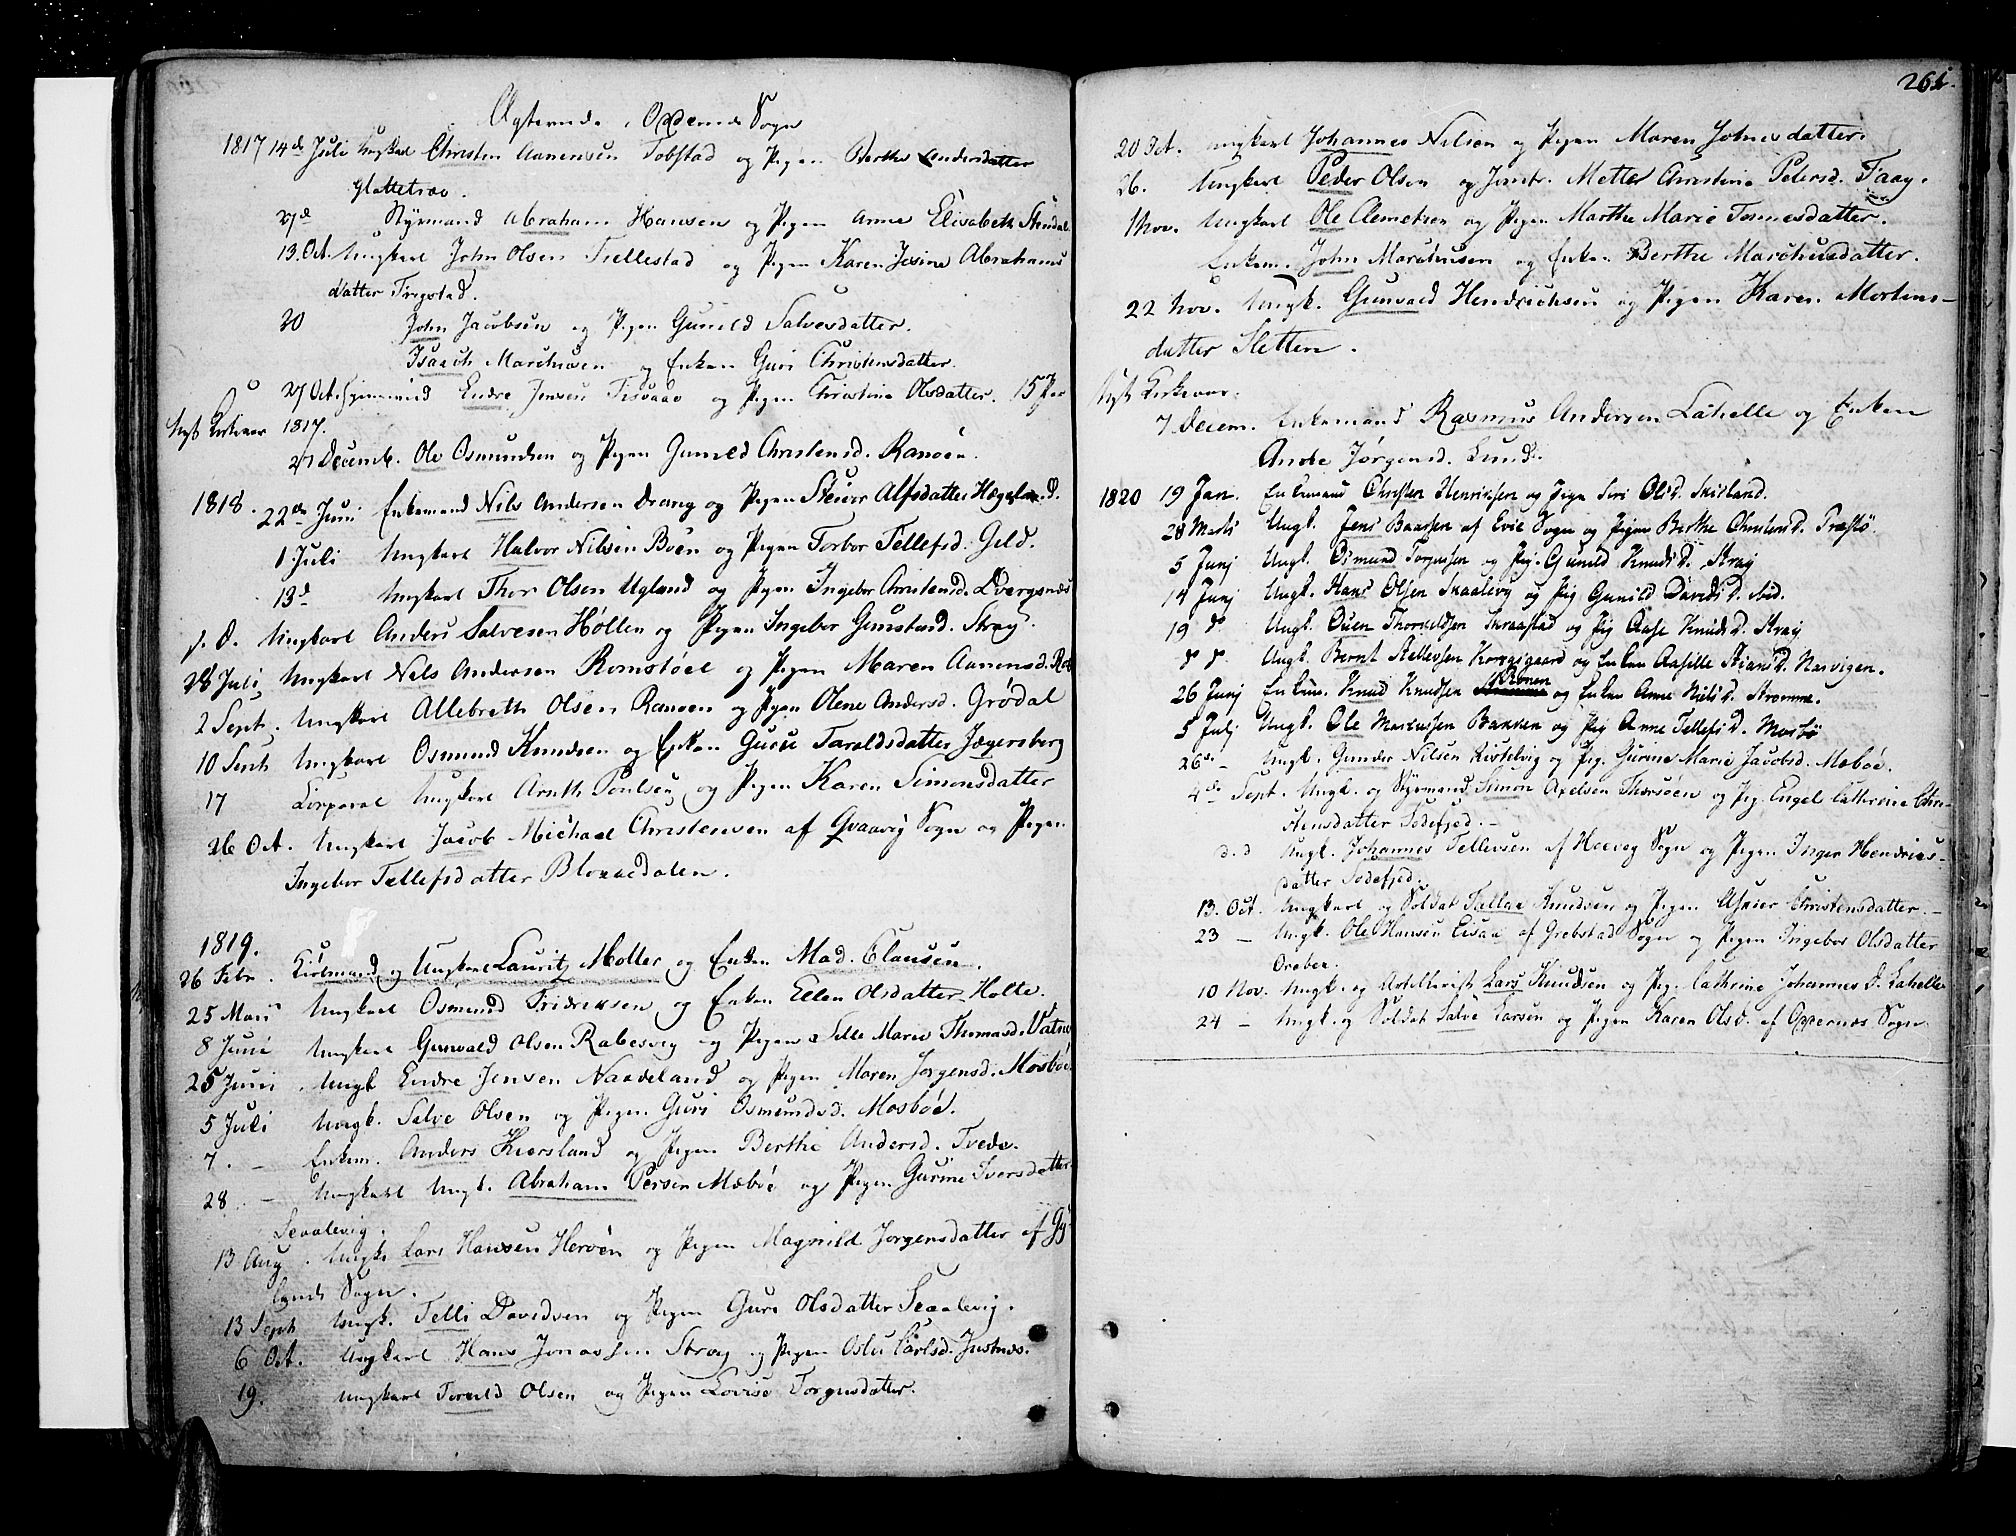 Ægteviede i Oxxernes Sogn
1817 14de Juli Ungkarl Christen Aanensen Tobstad og Pigen Berthe Andersdatter
Glattetræe.
27d Styrmand Abraham Hansen og Pigen Anne Elisabeth
13. Oct. Ungkarl John Olsen Tiellestad og Pigen Karen Jesine Abrahams
datter Fregstad.
20 John Jacobsen og Pigen Gunild Salvesdatter.
Isaach Marchusen og Enken Guri Christensdatter.
27 Oct. Endre Jensen og Pigen Christine Olsdatter. 15 Par
Nyt Kirkeaar 1817.
27 Decemb. Ole Osmundsen og Pigen Gunild Christensd. Ranøen.
1818. 22de Juni Enkemand Nils Andersen Drang og Pigen Siever Alfsdatter Hægeland.
1 Juli Ungkarl Halvor Nilsen Boen og Pigen Torbor Tellefsd. Geld.
13d Ungkarl Thor Olsen Ugland og Pigen Ingebor Christensd. Dvergsnæs
s. D. Ungkarl Anders Salvesen Høllen og Pigen Ingebor Gunstensd. Stray.
28 Juli Ungkarl Nels Andersen Romstøel og Pigen Maren Aanensd.
2 Sept. Ungkarl Allebreth Olsen Ranøen og Pigen Olene Andersd. Grødal
10 Sept Ungkarl Osmund Knudsen og Enken Guru Taraldsdatter Jægersberg
17 Corporal Ungkarl Arnth Poulsen og Pigen Karen Simonsdatter
26 Oct. Ungkarl Jacob Michael Christensen af Qvaavig Sogn og Pigen
Ingebor Tellefsdatter
1819.
26 Febr. og Ungkarl Lauritz Møller og Enken Mad. Clausen.
25 Mars Ungkarl Osmund Fridrecksen og Enken Ellen Olsdatter Holte.
8 Juni Ungkarl Gunvald Olsen Rabesvig og Pigen Sille Marie Thomasd. Vatne
25 Juni Ungk. Endre Jensen Naadeland og Pigen Maren Jørgensd. Mosbøe.
5 Juli Ungk. Salve Olsen og Pigen Guri Osmundsd. Mosbøe.
7. – Enkem. Anders Kiersland og Pigen Berthe Andersd. Tvede.
28 – Ungkarl Ungk. Abraham Persen Mæbøe og Pigen Gurine Iversdatter
Scaalevig.
13 Aug. Ungk. Lars Hansen Herøen og Pigen Magnild Jorgensdatter af Gy
lands Sogn.
13 Sept Ungk. Telli Davidsen og Pigen Guri Olsdatter Scaalevig.
6 Oct. Ungkarl Hans Jonassen Stray og Pigen Oslu Carlsd. Justnæs.
19. Ungkarl Torkild Olsen og Pigen Lovise Torgersdatter.
261.
20 Oct. Ungkarl Johannes Nilsen og Pigen Maren Johnesdatter.
26. Ungkarl Peder Olsen og Jomfr. Mette Christine Petersd. Faay.
1 Nov. Ungkarl Ole Clemetsen og Pigen Marthe Marie Tønnesdatter.
Enkem. John Marchusen og Enken Berthe Marchusdatter.
22 Nov. Ungk. Gunvald Hendrichsen og Pigen Karen Mortens-
datter Sletten.
Nyt Kirkeaar.
7 Decem. Enkemand Rasmus Andersen Lahelle og Enken
Anobe Jørgensd. Lund.
1820 19 Jan. Enkemand Christen Henriksen og Pige Siri Olsd. Skisland.
28 Marts Ungk. Jens Baarsen af Evie Sogn og Pigen Berthe Christensd. Træstø.
5 Junj Ungk. Osmund Torgussen og Pig. Gunild Knuds D. Stray
14 Junj Ungk. Hans Olsen Skaalevig og Pig Gunild Davids D. ibid.
19 d Ungk. Ouen Thorvaldsen Skraastad og Pig Aase Knuds D. Stray
d d. Ungk. Bernt Stellefsen Korsvigaard og Enken Aasille Stians D. Narvigen.
26 Junj Enkem. Knud Knudsen Ronen og Enken Anne Niels D. Strømme.
5 Julj Ungk. Ole Marcussen Bakken og Pig Anne Tellefs D. Mosbø
26de – Ungk. Gunder Nilsen Kistelvig og Pig. Gurine Marie Jacobsd. Mæbøe.
4de Sept. Ungk. og Styrmand Simon Axelsen Thorsøen og Pig. Engel Cathrine Chri-
stensdatter Sodefjed. –
d. d Ungk. Johannes Tellevsen af Heevog Sogn og Pigen Inger Hendrics-
datter Sodefjed.
13. Oct. Ungkarl og Soldat Tallac Knudsen og Pigen Christensdatter. –
23 – Ungk. Ole Hansen Eisaa af Grebstad Sogn og Pigen Ingebor Olsdatter
Drober.
10 Nov. Ungk. og Artellerist Lars Knudsen og Pig. Cathrine Johannes D. Lahelle
24 – Ungk. og Soldat Salve Larsen og Pigen Karen Olsd. af Oxernæs Sogn.